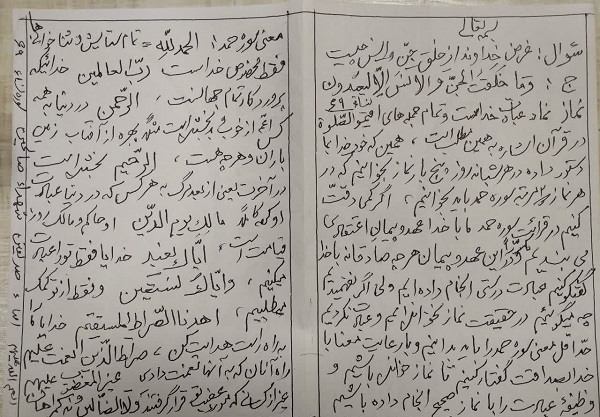 بسمه تعالی
سئوال: غرض خداوند از خلق جن و انس چیست
ج: و ما خلقت الجن و الانس الا لیعبدون
نماز نماد عبادت خداست و تمام جمله های اقیموا الصلوة
در قرآن اشاره به همین مطلب است، همین که خود خدا بما
دستور داده در هر شبانه روز پنج بار نماز بخوانیم که در
هر نماز ۲ مرتبه سوره حمد باید بخوانیم، اگر کمی دقت
کنیم در قرائت سوره حمد ما با خدا عهد و پیمان اعتقادی
می بندیم در این عهد و پیمان هر چه صادقانه با خدا
گفتگو کنیم عبادت درستی انجام داده ایم ولی اگر نفهمیدیم
چه میگوئیم در حقیقت نماز نخوانده ایم و عبادت نکردیم
حداقل معنی سوره حمد را باید بدانیم و با رعایت معنا با
خدا بصداقت گفتار کنیم تا نماز خوانده باشیم و
وظیفه عبادت را با نماز صحیح انجام داده باشیم
معنی سوره حمد: الحمد لله = تمام ستایش و ثنا خوانی ها
فقط مخصوص خداست رب العالمین خدائیکه
پروردگار تمام جهانست، الرحمن در دنیا به همه
کس اعم از خوب و بد بخشنده است مثلا بهره از آفتاب زمین
باران و هر چه هست، الرحیم بخشنده است
در آخرت یعنی از بعد مرگ به هر کس که در دنیا عبادت
او کرده مالک یوم الدین او حاکم و مالک روز
قیامت است، ایاک نعبد خدایا فقط تو را عبادت
میکنیم، و ایاک نستعین و فقط از تو کمک
میطلبیم، اهدنا الصراط المستقیم خدایا ما را
به راه راست هدایت کن، صراط الذین انعمت علیهم
راه آنان که به آنها نعمت دادی غیر المغضوب علیهم
غیر از کسانی که مورد غضب قرار گرفتند ولا الضالین و نه گمراهان